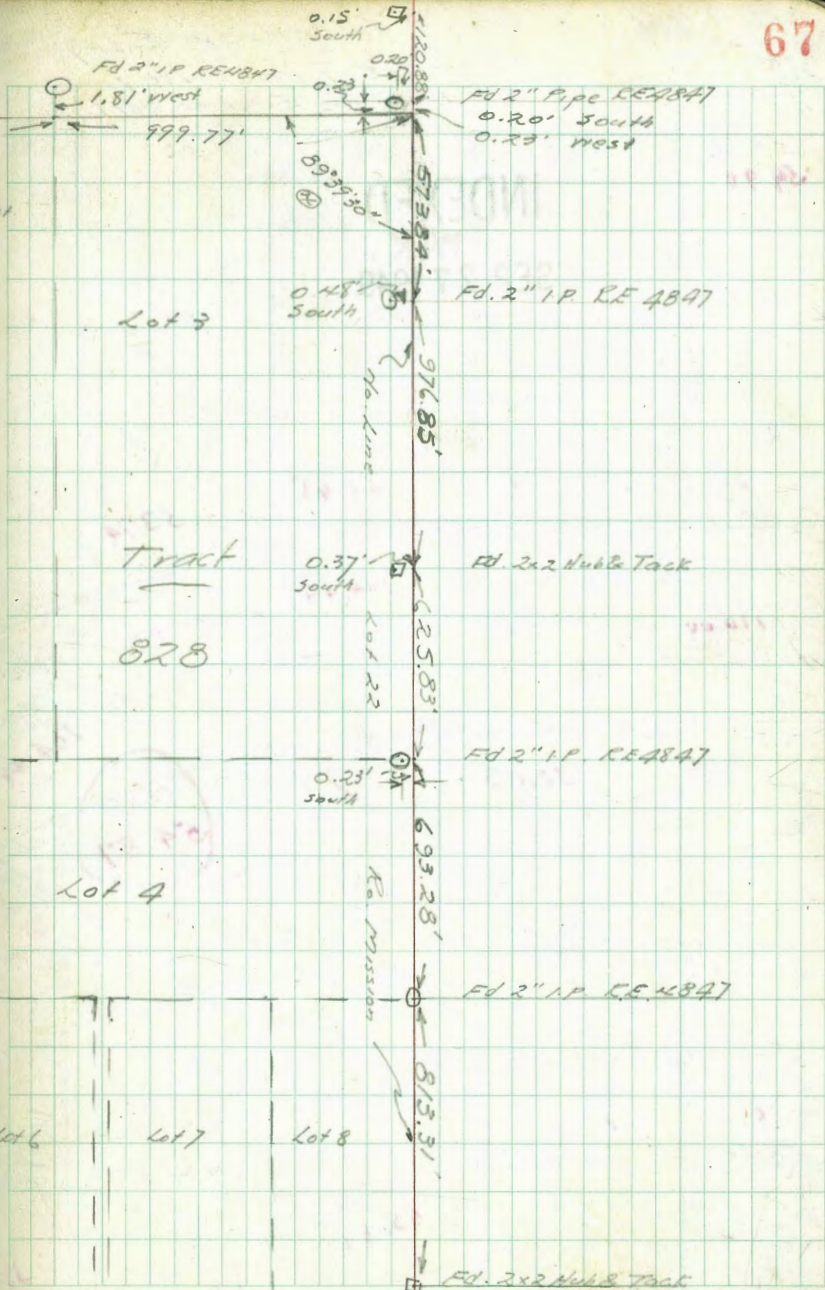 67
0.15'
South
120.88'
Fd 2" I.P. RE4847
1.81' West
999.77'
0.20'
0.23'
Fd 2" Pipe RE4847
0.20' South
0.23' West
89°39'30"
573.84'
0.48'
South
Fd. 2" I.P. RE 4847
Lot 3
No. Line
976.85'
Tract
828
0.37'
South
Fd. 2x2 Hub & Tack
Lot 22
625.83'
Fd 2" I.P. RE4847
0.23'
South
693.28'
Lot 4
Ro. Mission
Fd 2" I.P. RE 4847
813.31'
Lot 6
Lot 7
Lot 8
Fd. 2x2 Hub & Tack